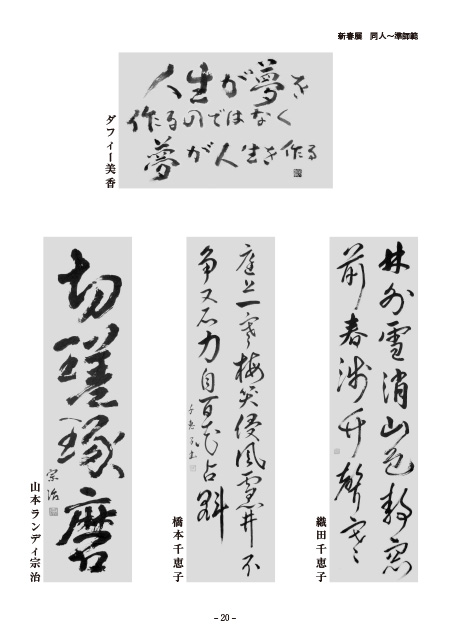 新春展　同人～準師範
人生が夢を
作るのではなく
夢が人生を作る
ダフィー美香
林外雪消山色静窓
前春浅竹聲寒
織田千恵子
庭上一寒梅笑侵風雪開不
争又不力自百花占魁
橋本千恵子
切瑳琢磨
宗治
山本ランディ宗治
- 20 -